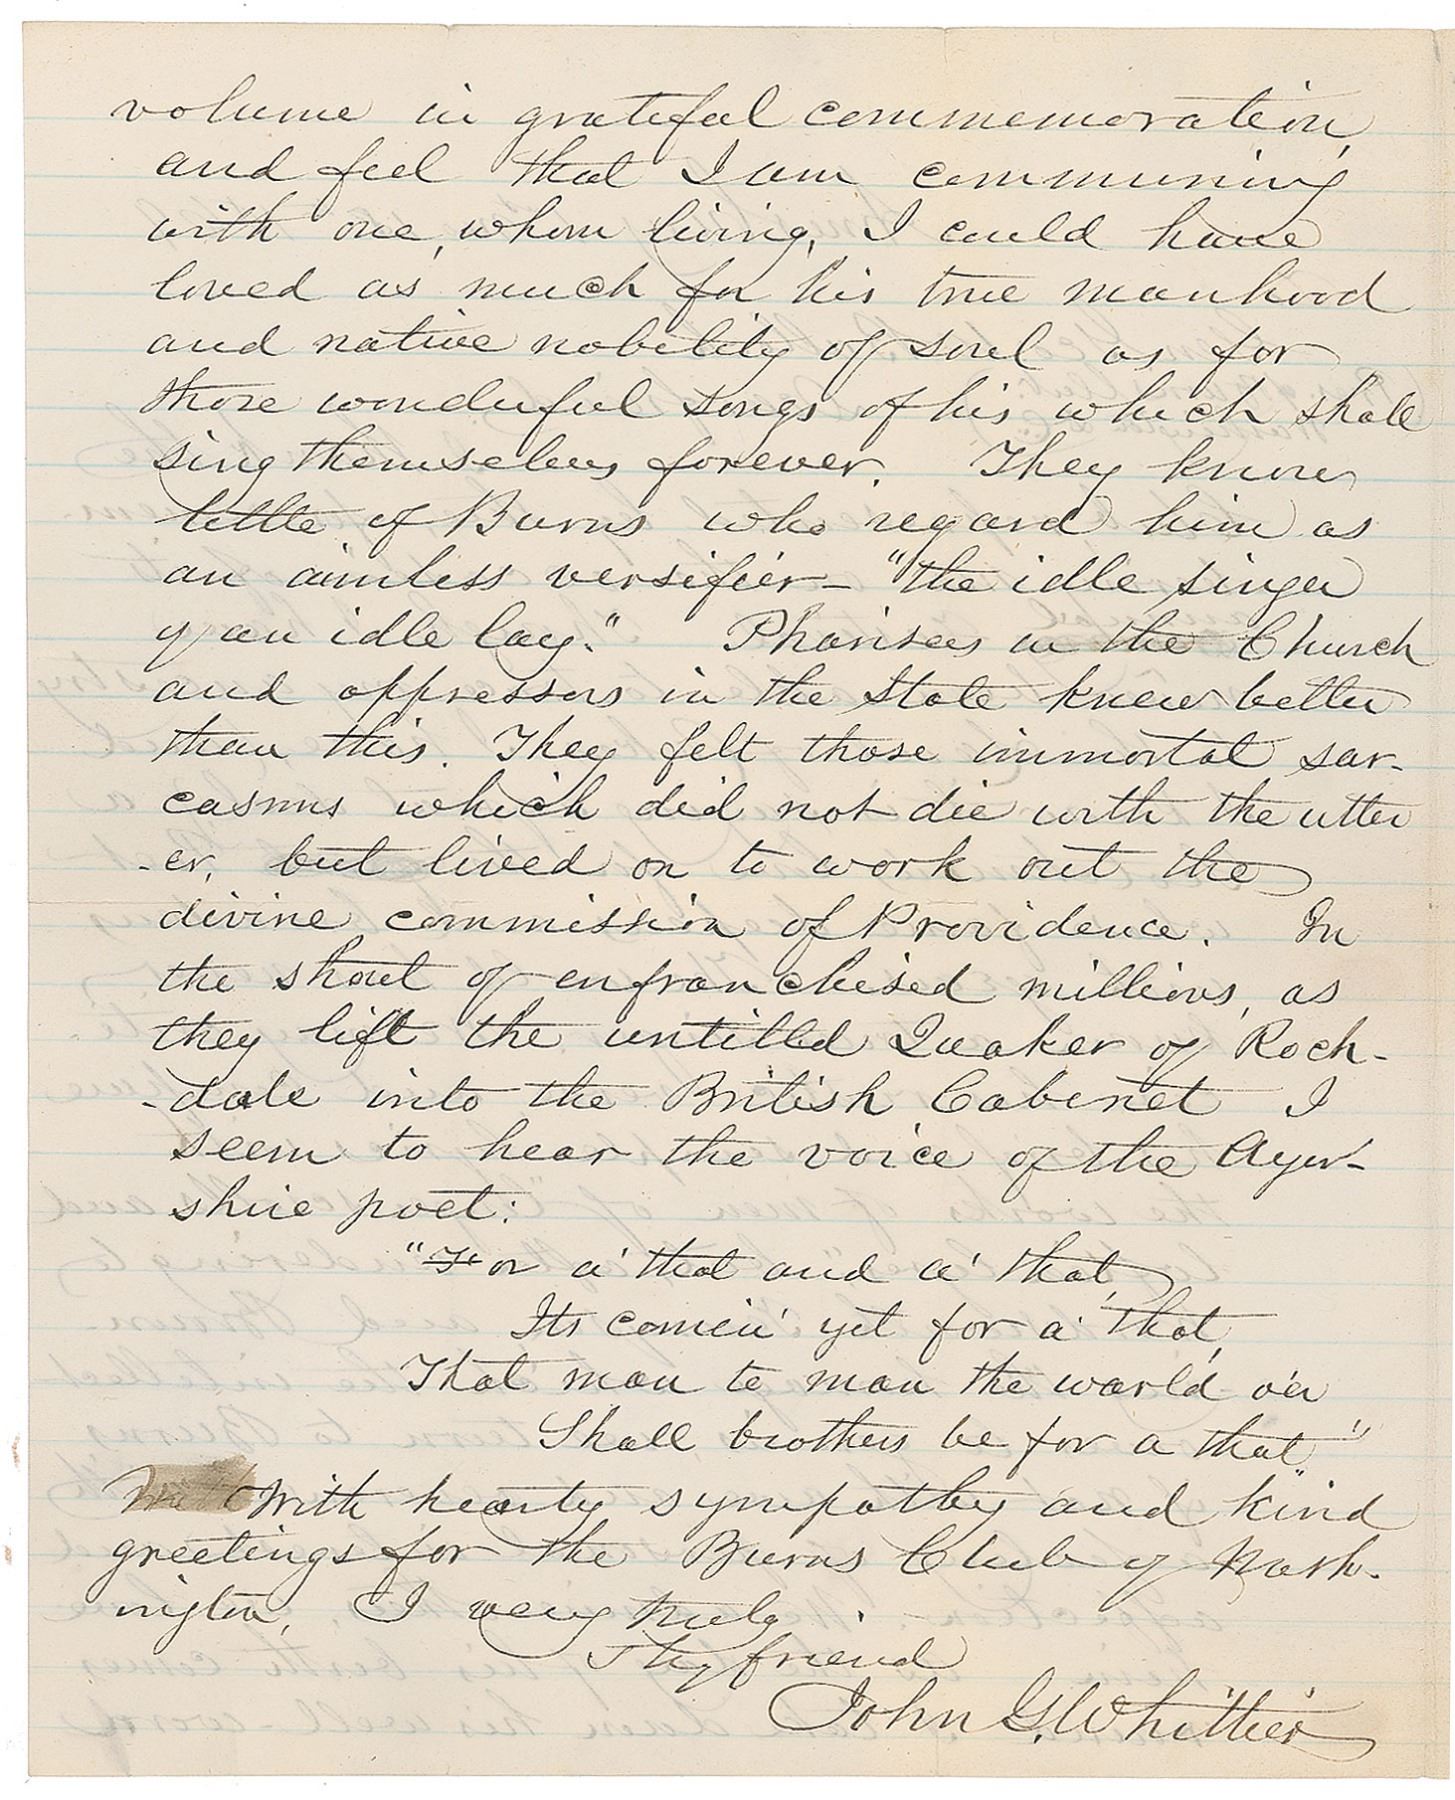 volume in grateful commemoration,
and feel that I am communing
with one, whom living, I could have
loved as much for his true manhood
and native nobility of soul as for
those wonderful songs of his which shall
sing themselves forever. They know
little of Burns who regard him as
an aimless versifier — "the idle singer
of an idle lay." Pharisees in the Church
and oppressors in the State knew better
than this. They felt those immortal sar-
casms which did not die with the utter
-er, but lived on to work out the
divine commission of Providence. In
the shout of enfranchised millions, as
they lift the untitled Quaker of Roch-
-dale into the British Cabinet I
seem to hear the voice of the Ayr-
shire poet:
"For a' that and a' that,
Its comin' yet for a' that,
That man to man the warld o'er
Shall brothers be for a that"
With With hearty sympathy and kind
greetings for the Burns Club of Wash-
ington, I very truly
Thy friend
John G. Whittier